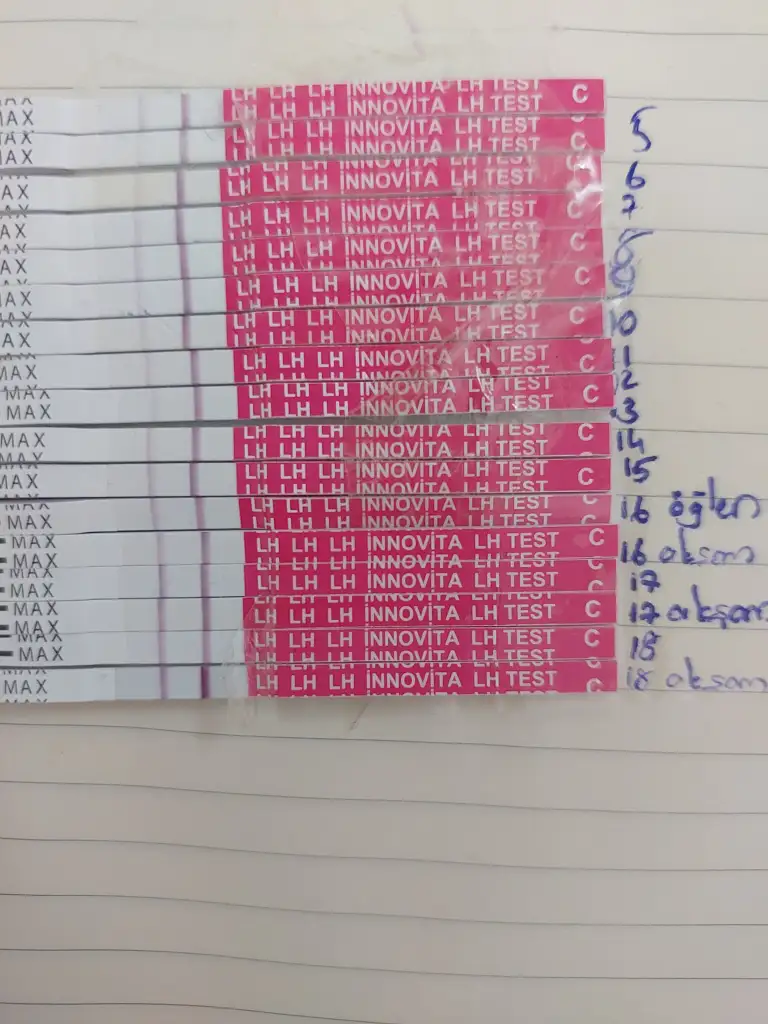 MAX LH LH LH İNNOVİTA LH TEST C
MAX LH LH LH İNNOVİTA LH TEST C 5
MAX LH LH LH İNNOVİTA LH TEST 6
MAX LH LH LH İNNOVİTA LH TEST C 7
MAX LH LH LH İNNOVİTA LH TEST C
MAX LH LH LH İNNOVİTA LH TEST C
MAX LH LH LH İNNOVİTA LH TEST C 10
MAX LH LH LH İNNOVİTA LH TEST C
MAX LH LH LH İNNOVİTA LH TEST C
MAX LH LH LH İNNOVİTA LH TEST C 14
MAX LH LH LH İNNOVİTA LH TEST C 15
MAX LH LH LH İNNOVİTA LH TEST 16 öğlen
MAX LH LH LH İNNOVİTA LH TEST C 16 akşam
MAX LH LH LH İNNOVİTA LH TEST 17
MAX LH LH LH İNNOVİTA LH TEST C 17 akşam
MAX LH LH LH İNNOVİTA LH TEST 18
MAX LH LH LH İNNOVİTA LH TEST C 18 akşam